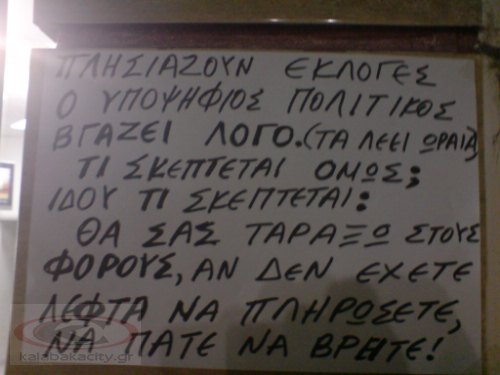 ΠΛΗΣΙΑΖΟΥΝ ΕΚΛΟΓΕΣ
Ο ΥΠΟΨΗΦΙΟΣ ΠΟΛΙΤΙΚΟΣ
ΒΓΑΖΕΙ ΛΟΓΟ.(ΤΑ ΛΕΕΙ ΩΡΑΙΑ)
ΤΙ ΣΚΕΠΤΕΤΑΙ ΟΜΩΣ;
ΙΔΟΥ ΤΙ ΣΚΕΠΤΕΤΑΙ:
ΘΑ ΣΑΣ ΤΑΡΑΞΩ ΣΤΟΥΣ
ΦΟΡΟΥΣ, ΑΝ ΔΕΝ ΕΧΕΤΕ
ΛΕΦΤΑ ΝΑ ΠΛΗΡΩΣΕΤΕ,
ΝΑ ΠΑΤΕ ΝΑ ΒΡΕΙΤΕ!
kalabakacity.gr